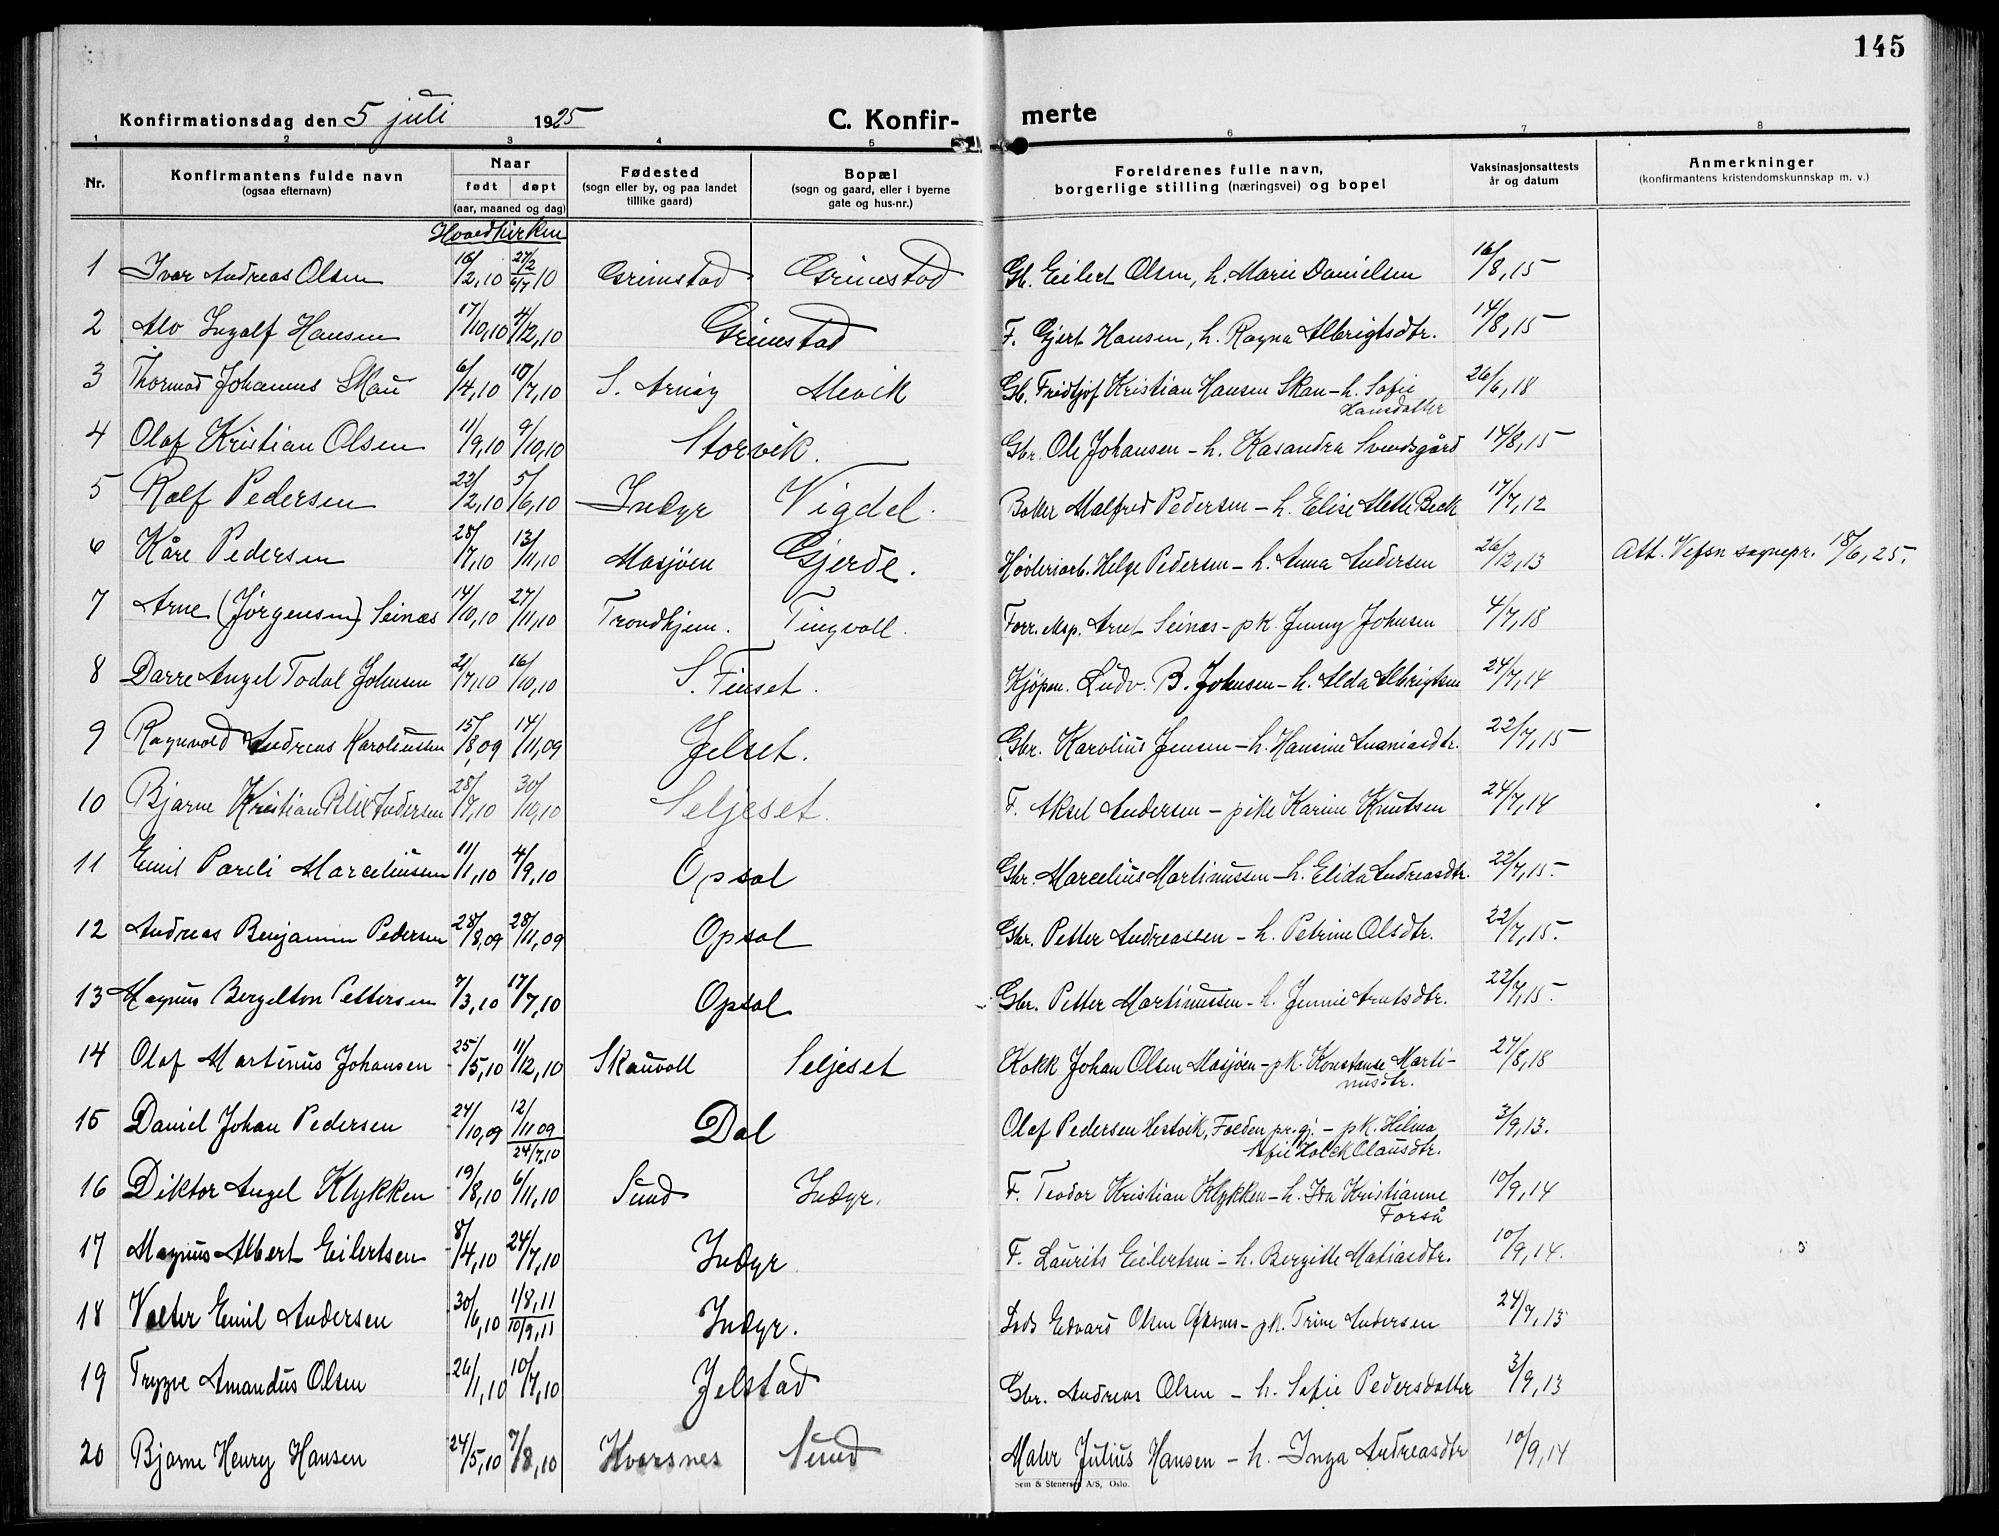 145
Konfirmationsdag den 5 juli 1925
C. Konfir-
merte
1 2 3 4 5 6 7 8
Nr.
Konfirmantens fulde navn
(ogsaa efternavn)
Naar
født døpt
(aar, maaned og dag)
Fødested
(sogn eller by, og paa landet
tillike gaard)
Bopæl
(sogn og gaard, eller i byerne
gate og hus-nr.)
Foreldrenes fulle navn,
borgerlige stilling (næringsvei) og bopel
Vaksinasjonsattests
år og datum
Anmerkninger
(konfirmantens kristendomskunnskap m. v.)
Hovedkirken
1 Ivar Andreas Olsen 16/2,10 27/2 6/7 10 Grimstad Grimstad Gb. Eilert Olsen, h. Marie Danielsen 16/8,15
2 Alv Ingolf Hansen 17/10,10 4/12,10 Grimstad F. Gjert Hansen, h. Ragna Albrigtsdtr. 14/8,15
3 Thormod Johannes Skau 6/4,10 10/7,10 S. Arnøy Mevik Gb. Fridtjof Kristian Hansen Skau - h. Sofie Hansdatter 26/6,18
4 Olaf Kristian Olsen 11/9,10 9/10,10 Storvik. Gbr. Ole Johansen - h. Kasandra Svendsgård 14/8,15
5 Rolf Pedersen 22/2,10 5/6,10 Indyr Vigdel. Malfred Pedersen - h. Elise Mette Beck 17/7,12
6 Kåre Pedersen 28/7,10 13/11,10 Mosjøen Gjerde. Høvleriarb. Helge Pedersen - h. Anna Andersen 26/12,13 Att. Vefsn sognepr. 18/6,25.
7 Arne (Jørgensen) Seines 14/10,10 27/11,10 Trondhjem. Tingvoll. Forr. eksp. Arnt Seines - pk. Jenny Johnsen 4/7,18
8 Darre Angel Todal Johnsen 21/7,10 16/10,10 S. Finset. Kjøpm. Ludv. B. Johnsen - h. Alda Albrigtsen 24/7,14
9 Ragnvald Andreas Karoliussen 15/8,09 14/11,09 Jelset. Gbr. Karolius Jensen - h. Hansine Ananiasdtr. 22/7,15
10 Bjarne Kristian Blix Andersen 28/7,10 30/10,10 Seljeset. F. Aksel Andersen - pike Karine Knutsen 24/7,14
11 Emil Pareli Marceliussen 11/1,10 4/9,10 Opsal Gbr. Marcelius Martinussen - h. Elida Andreasdtr. 22/7,15.
12 Andreas Benjamin Pedersen 28/8,09 28/11,09 Opsal Gbr. Petter Andreassen - h. Petrine Olsdtr. 22/7,15.
13 Magnus Bergelton Pettersen 7/3,10 17/7,10 Opsal Gbr. Petter Martinussen - h. Jennie Arntsdtr. 22/7,15.
14 Olaf Martinus Johansen 25/5,10 11/12,10 Skauvoll Seljeset Kokk Johan Olsen Mosjøen - pk. Konstanse Marti-
nusdtr. 27/8,18
15 Daniel Johan Pedersen 24/10,09 12/11 09 24/7,10 Dal Olaf Pedersen Hestvik, Folden pr.gj. - pk. Hilma
Sofie Holck Olausdtr. 3/9,13.
16 Diktor Angel Klykken 19/8,10 6/11,10 Sund Indyr. F. Teodor Kristian Klykken - h. Ida Kristianne
Forså 10/9,14
17 Magnus Albert Eilertsen 8/4,10 24/7,10 Indyr F. Laurits Eilertsen - h. Bergitte Matiasdtr. 10/9,14.
18 Valter Emil Andersen 30/6,10 1/8,11 10/9,11 Indyr. Lods Edvard Olsen - pk. Trine Andersen 24/7,13
19 Trygve Amandus Olsen 26/1,10 10/7,10 Jelstad Gbr. Andreas Olsen - h. Sofie Pedersdatter 3/9,13
20 Bjarne Henry Hansen 24/5,10 7/8,10 Kvarsnes Sund Maler Julius Hansen - h. Inga Andreasdtr 10/9,14
Sem & Stenersen A/S, Oslo.